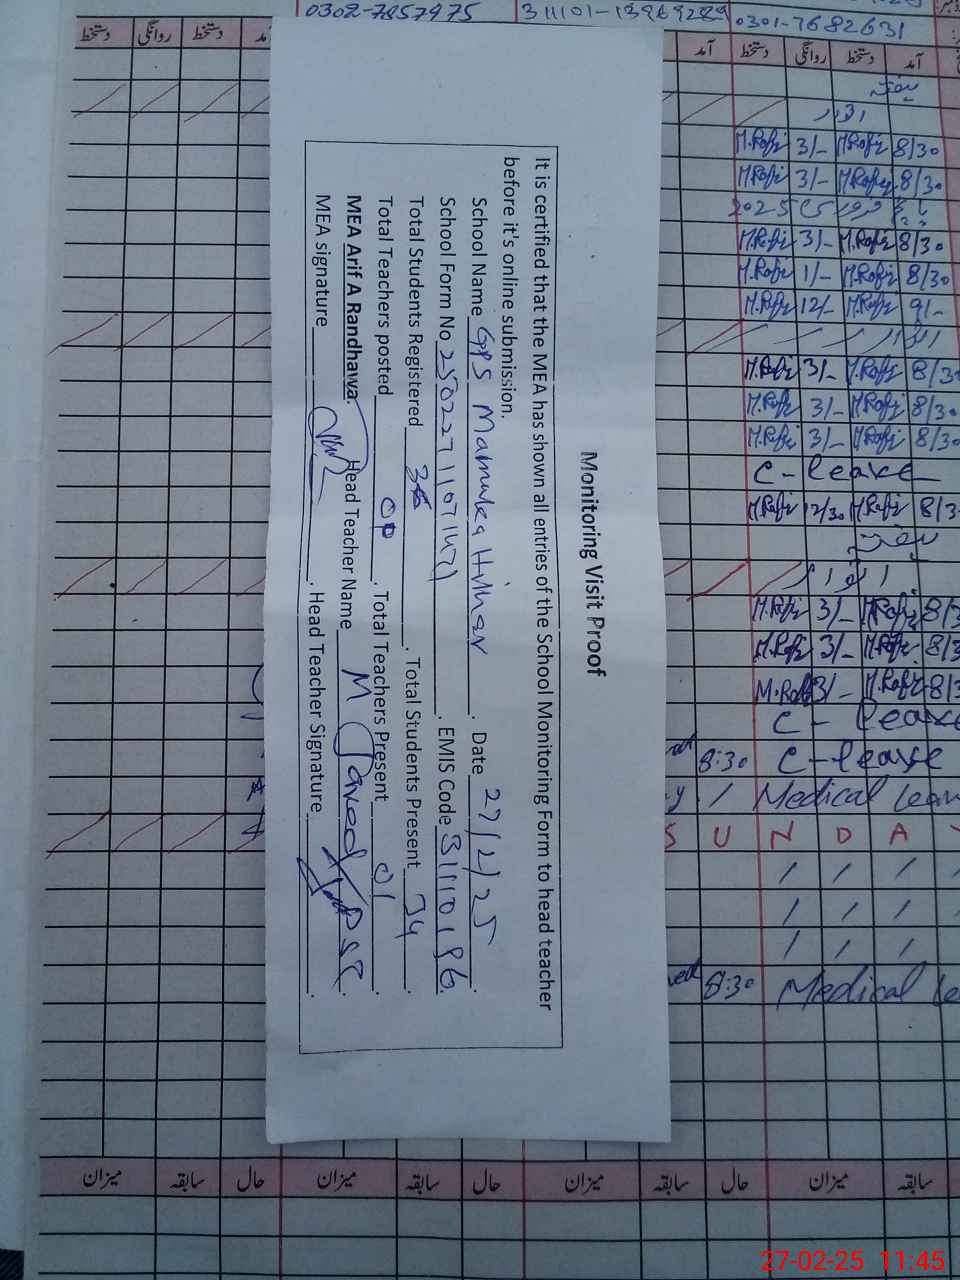 0302-7857975
311101-1396928
0301-7682631
دستخط روانگی دستخط آمد دستخط روانگی دستخط آمد
Monitoring Visit Proof
It is certified that the MEA has shown all entries of the School Monitoring Form to head teacher
before it's online submission.
School Name GPS Mamuka Hithar. Date 27/2/25.
School Form No. EMIS Code 31110196.
Total Students Registered. Total Students Present 34.
Total Teachers posted. Total Teachers Present 01.
MEA Arif A Randhawa. Head Teacher Name M Javed PST.
MEA signature. Head Teacher Signature.
اتوار
M.Rafiz 3/- M.Rafiz 8/30
M.Rafiz 3/- M.Rafiz 8/30
فروری 2025
M.Rafiz 3/- M.Rafiz 8/30
M.Rafiz 1/- M.Rafiz 8/30
M.Rafiz 12/- M.Rafiz 9/-
اتوار
M.Rafiz 3/- M.Rafiz 8/30
M.Rafiz 3/- M.Rafiz 8/30
M.Rafiz 3/- M.Rafiz 8/30
C-leave
M.Rafiz 12/30 M.Rafiz 8/3
اتوار
M.Rafiz 3/- M.Rafiz 8/3
M.Rafiz 3/- M.Rafiz 8/3
M.Rafiz 3/- M.Rafiz 8/3
C-leave
8:30 C-leave
Medical leav
S U N D A Y
8:30 Medical le
میزان سابقہ حال میزان سابقہ حال میزان سابقہ حال میزان سابقہ
27-02-25 11:45